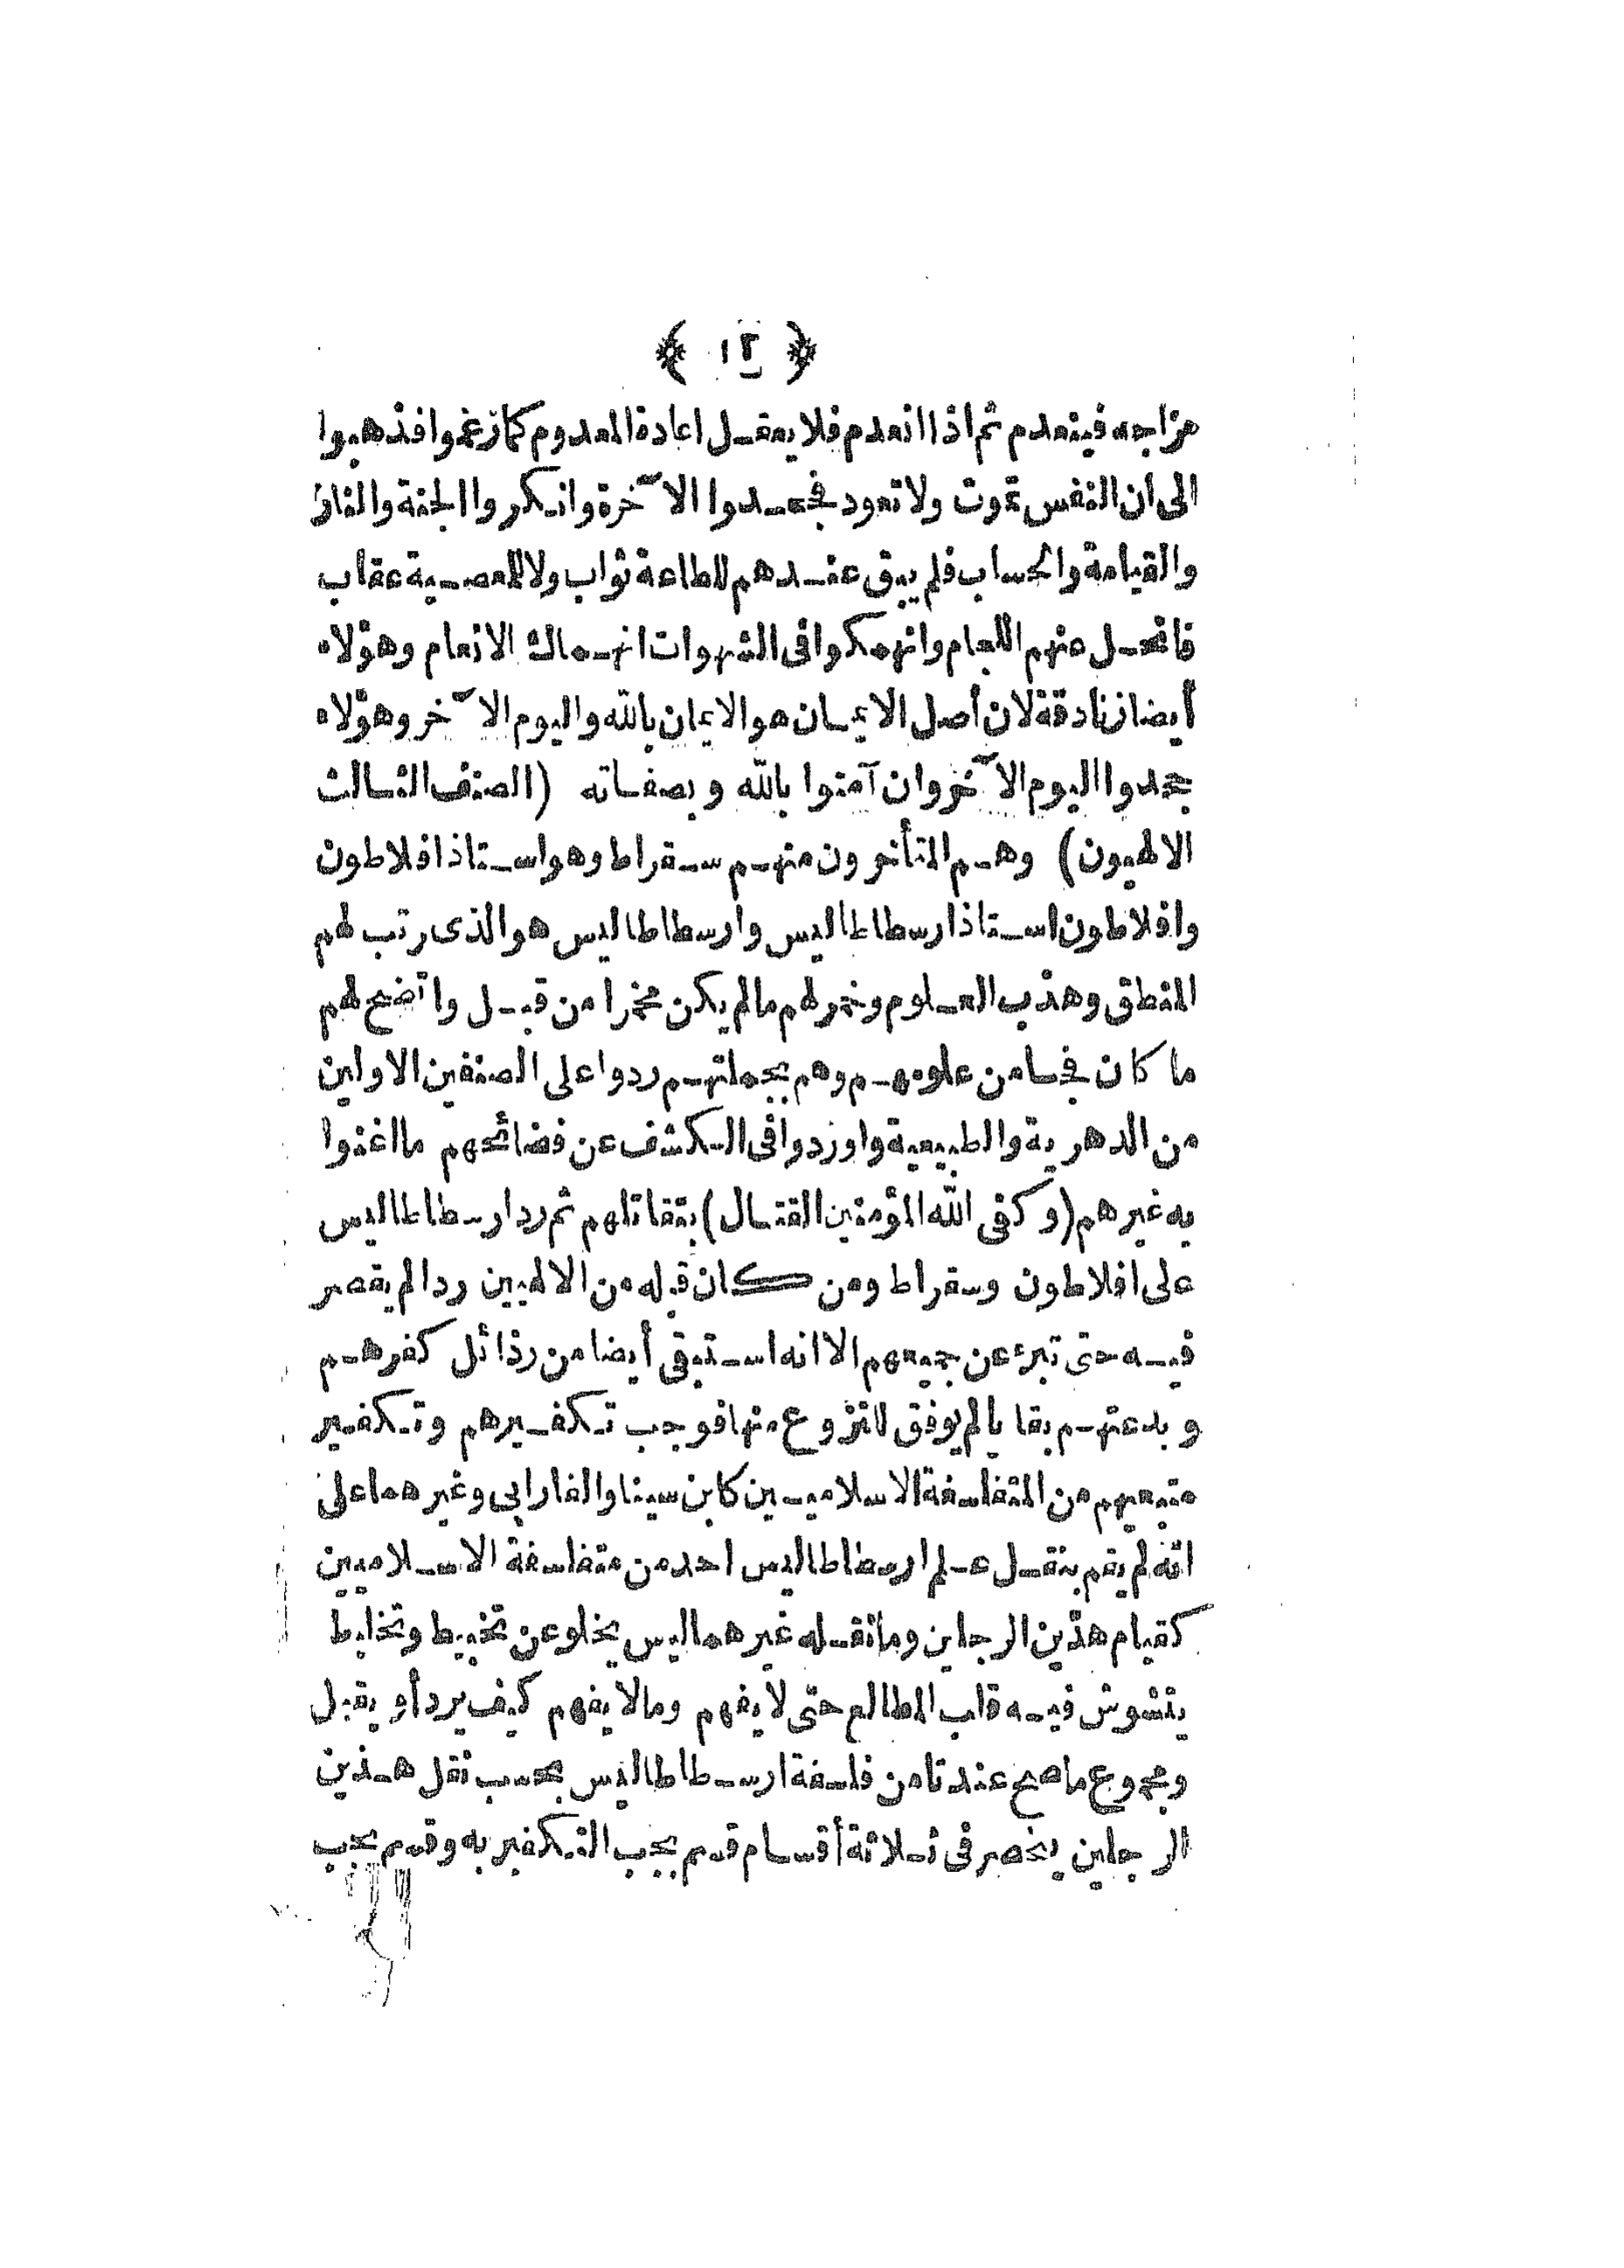 ﴿ ١٢ ﴾
مزاجه فينعدم ثم اذا انعدم فلا يعقل اعادة المعدوم كما زعموا فذهبوا
الى ان النفس تموت ولا تعود فجحدوا الآخرة وانكروا الجنة والنار
والقيامة والحساب فلم يبق عندهم للطاعة ثواب ولا للمعصية عقاب
فانحل عنهم اللجام وانهمكوا فى الشهوات انهماك الانعام وهؤلاء
أيضا زنادقة لان أصل الايمان هو الايمان بالله واليوم الآخر وهؤلاء
جحدوا اليوم الآخر وان آمنوا بالله وبصفاته (الصنف الثالث
الالهيون) وهم المتأخرون منهم سقراط وهو استاذ افلاطون
وافلاطون استاذ ارسطاطاليس وارسطاطاليس هو الذى رتب لهم
المنطق وهذب العلوم وخمر لهم مالم يكن مخمرا من قبل واتضح لهم
ما كان فجا من علومهم وهم بجملتهم ردوا على الصنفين الاولين
من الدهرية والطبيعية واوردوا فى الكشف عن فضائحهم ما اغنوا
به غيرهم (وكفى الله المؤمنين القتال) بتقاتلهم ثم رد ارسطاطاليس
على افلاطون وسقراط ومن كان قبله من الالهيين ردا لم يقصر
فيه حتى تبرء عن جميعهم الا انه استبقى أيضا من رذائل كفرهم
وبدعتهم بقايا لم يوفق للنزوع منها فوجب تكفيرهم وتكفير
متبعيهم من المتفلسفة الاسلاميين كابن سينا والفارابى وغيرهما على
انه لم يقم بنقل علم ارسطاطاليس احد من متفلسفة الاسلاميين
كقيام هذين الرجلين وما نقله غيرهما ليس يخلو عن تخبيط وتخليط
يتشوش فيه قلب المطالع حتى لا يفهم ومالا يفهم كيف يرد أو يقبل
ومجموع ما صح عندنا من فلسفة ارسطاطاليس بحسب نقل هذين
الرجلين ينحصر فى ثلاثة أقسام قسم يجب التكفير به وقسم يجب